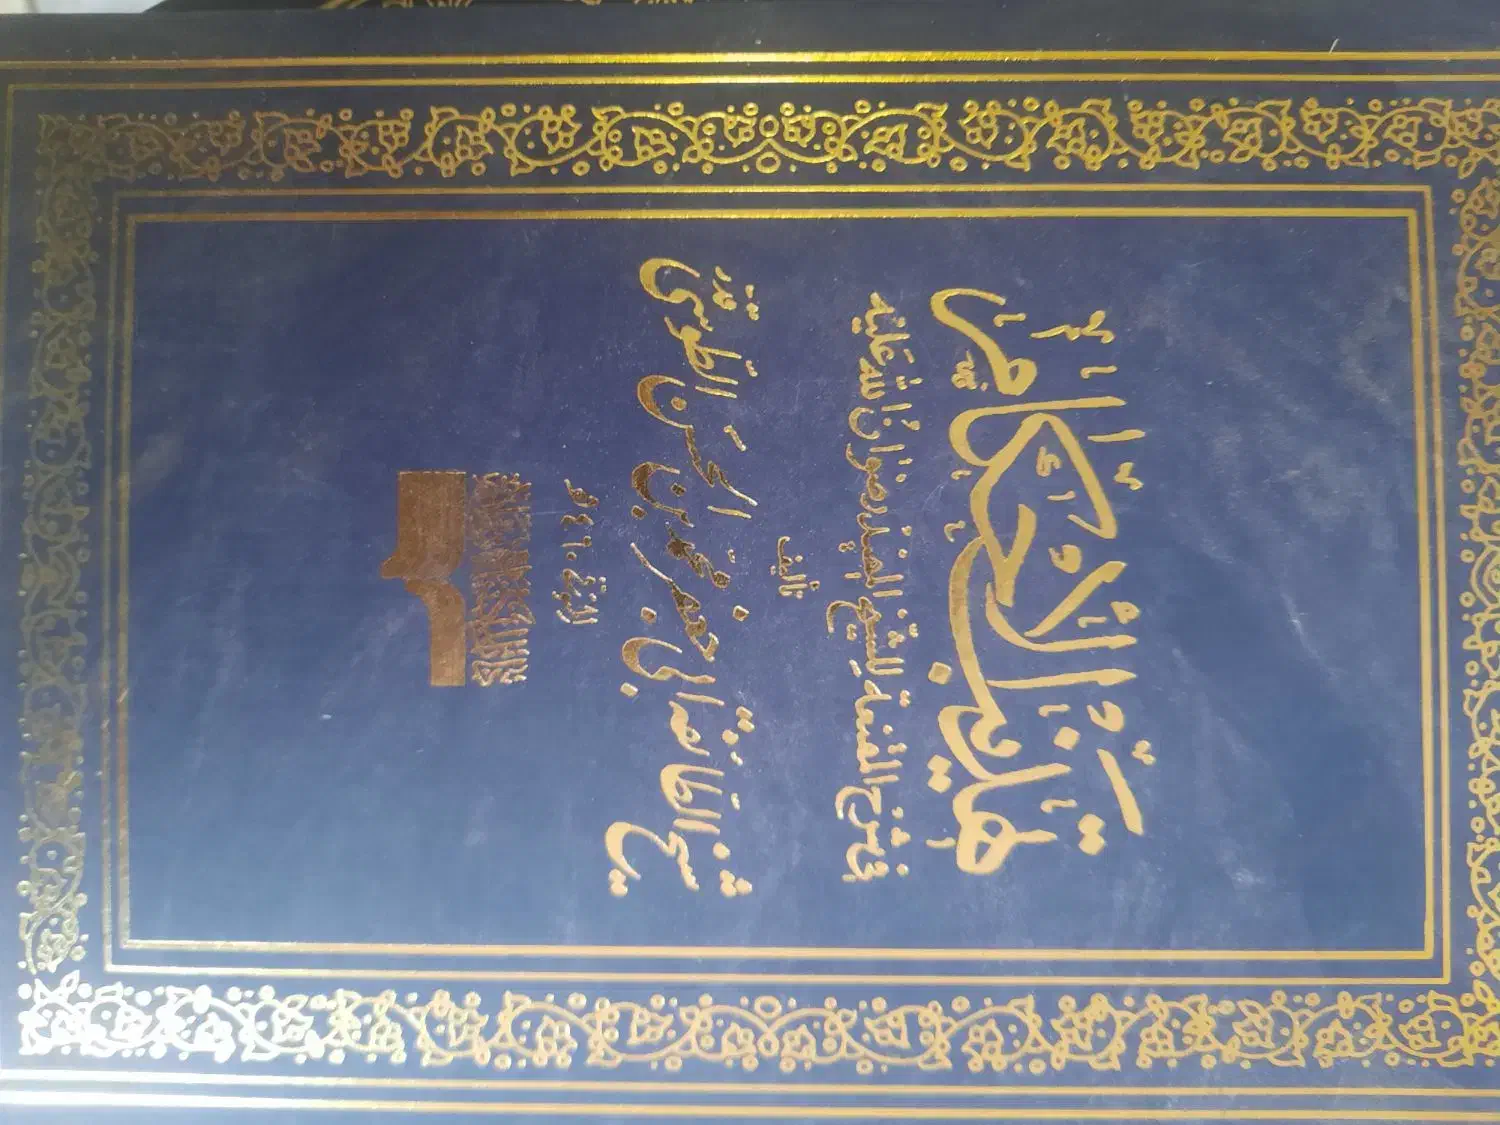 تَهْذِيبُ الْأَحْكَامِ
في شرح المقنعة للشيخ المفيد رضوان الله عليه
تأليف
شيخ الطائفة أبي جعفر محمد بن الحسن الطوسي قدس سره
٤٦٠ هـ